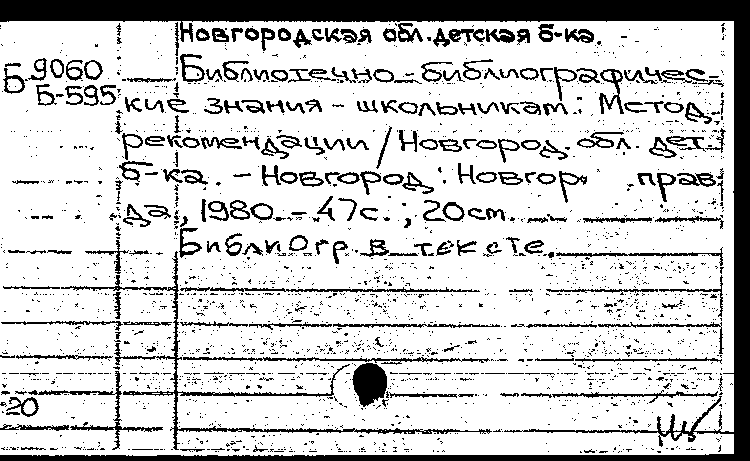 Новгородская обл. детская б-ка.
Б 9060
Б-595
Библиотечно-библиографичес-
кие знания - школьникам: Метод.
рекомендации / Новгород. обл. дет.
б-ка. - Новгород: Новгор. прав
да, 1980. - 47с.; 20см.
Библиогр. в тексте.
20